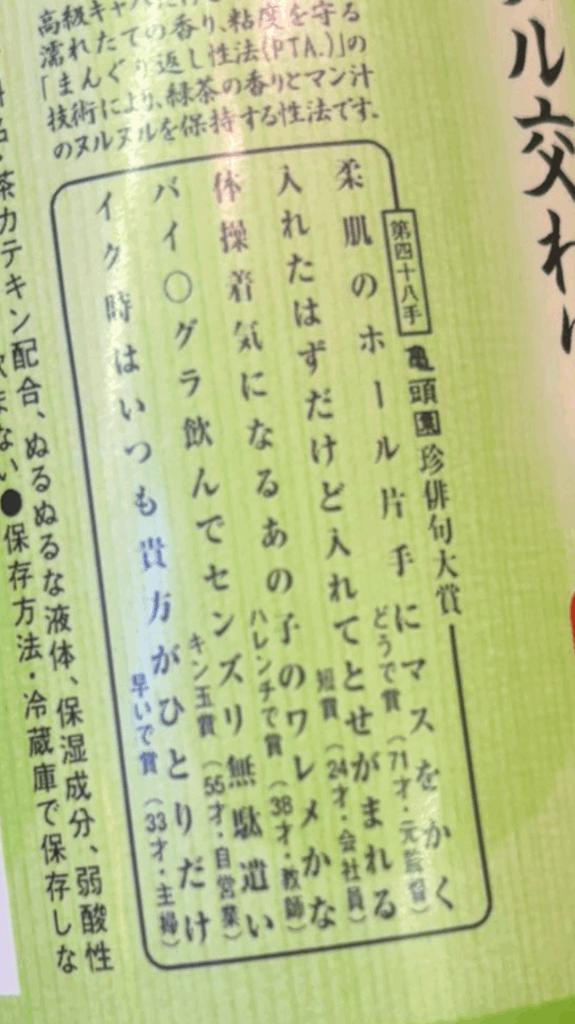 ル交わ
高級キャバ
濡れたての香り、粘度を守る
「まんぐり返し性法(PTA.)」の
技術により、緑茶の香りとマン汁
のヌルヌルを保持する性法です。
第四十八手 亀頭園珍俳句大賞
柔肌のホール片手にマスをかく
どうで賞(71才・元監督)
入れたはずだけど入れてとせがまれる
短賞(24才・会社員)
体操着気になるあの子のワレメかな
ハレンチで賞(38才・教師)
バイ〇グラ飲んでセンズリ無駄遣い
キン玉賞(55才・自営業)
イク時はいつも貴方がひとりだけ
早いで賞(33才・主婦)
茶カテキン配合、ぬるぬるな液体、保湿成分、弱酸性
●保存方法・冷蔵庫で保存しな